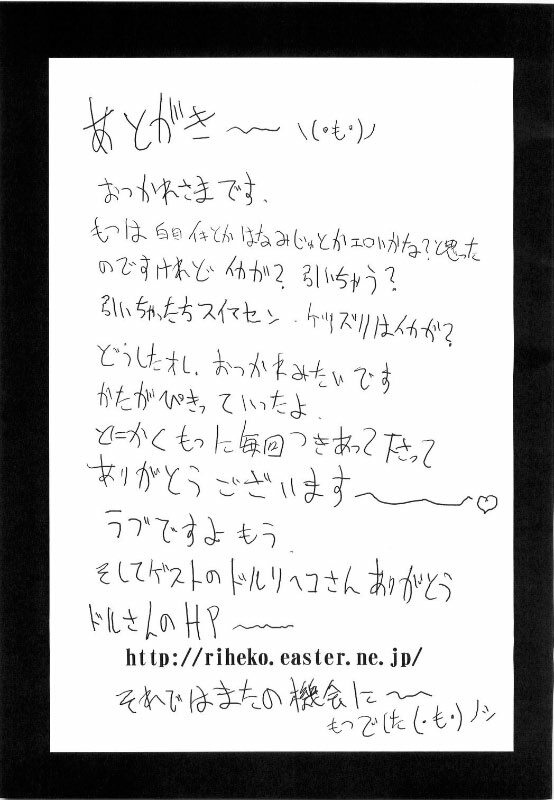 あとがき〜〜 \(・も・)ノ
おつかれさまです.
もつは白目イキとかはなみじゅとかエロいかな?と思った
のですけれど イカが? 引いちゃう?
引いちゃったらスイマセン. ケツズリはイカが?
どうしたオレ. おつかれみたいです
かたがぴきっていったよ.
とにかくもつに毎回つきあって下さって
ありがとうございます〜〜♡
ラブですよもう.
そしてゲストのドルリヘコさんありがとう
ドルさんのHP 〜〜
http://riheko.easter.ne.jp/
それではまたの機会に〜〜
もつでした(・も・)ノシ